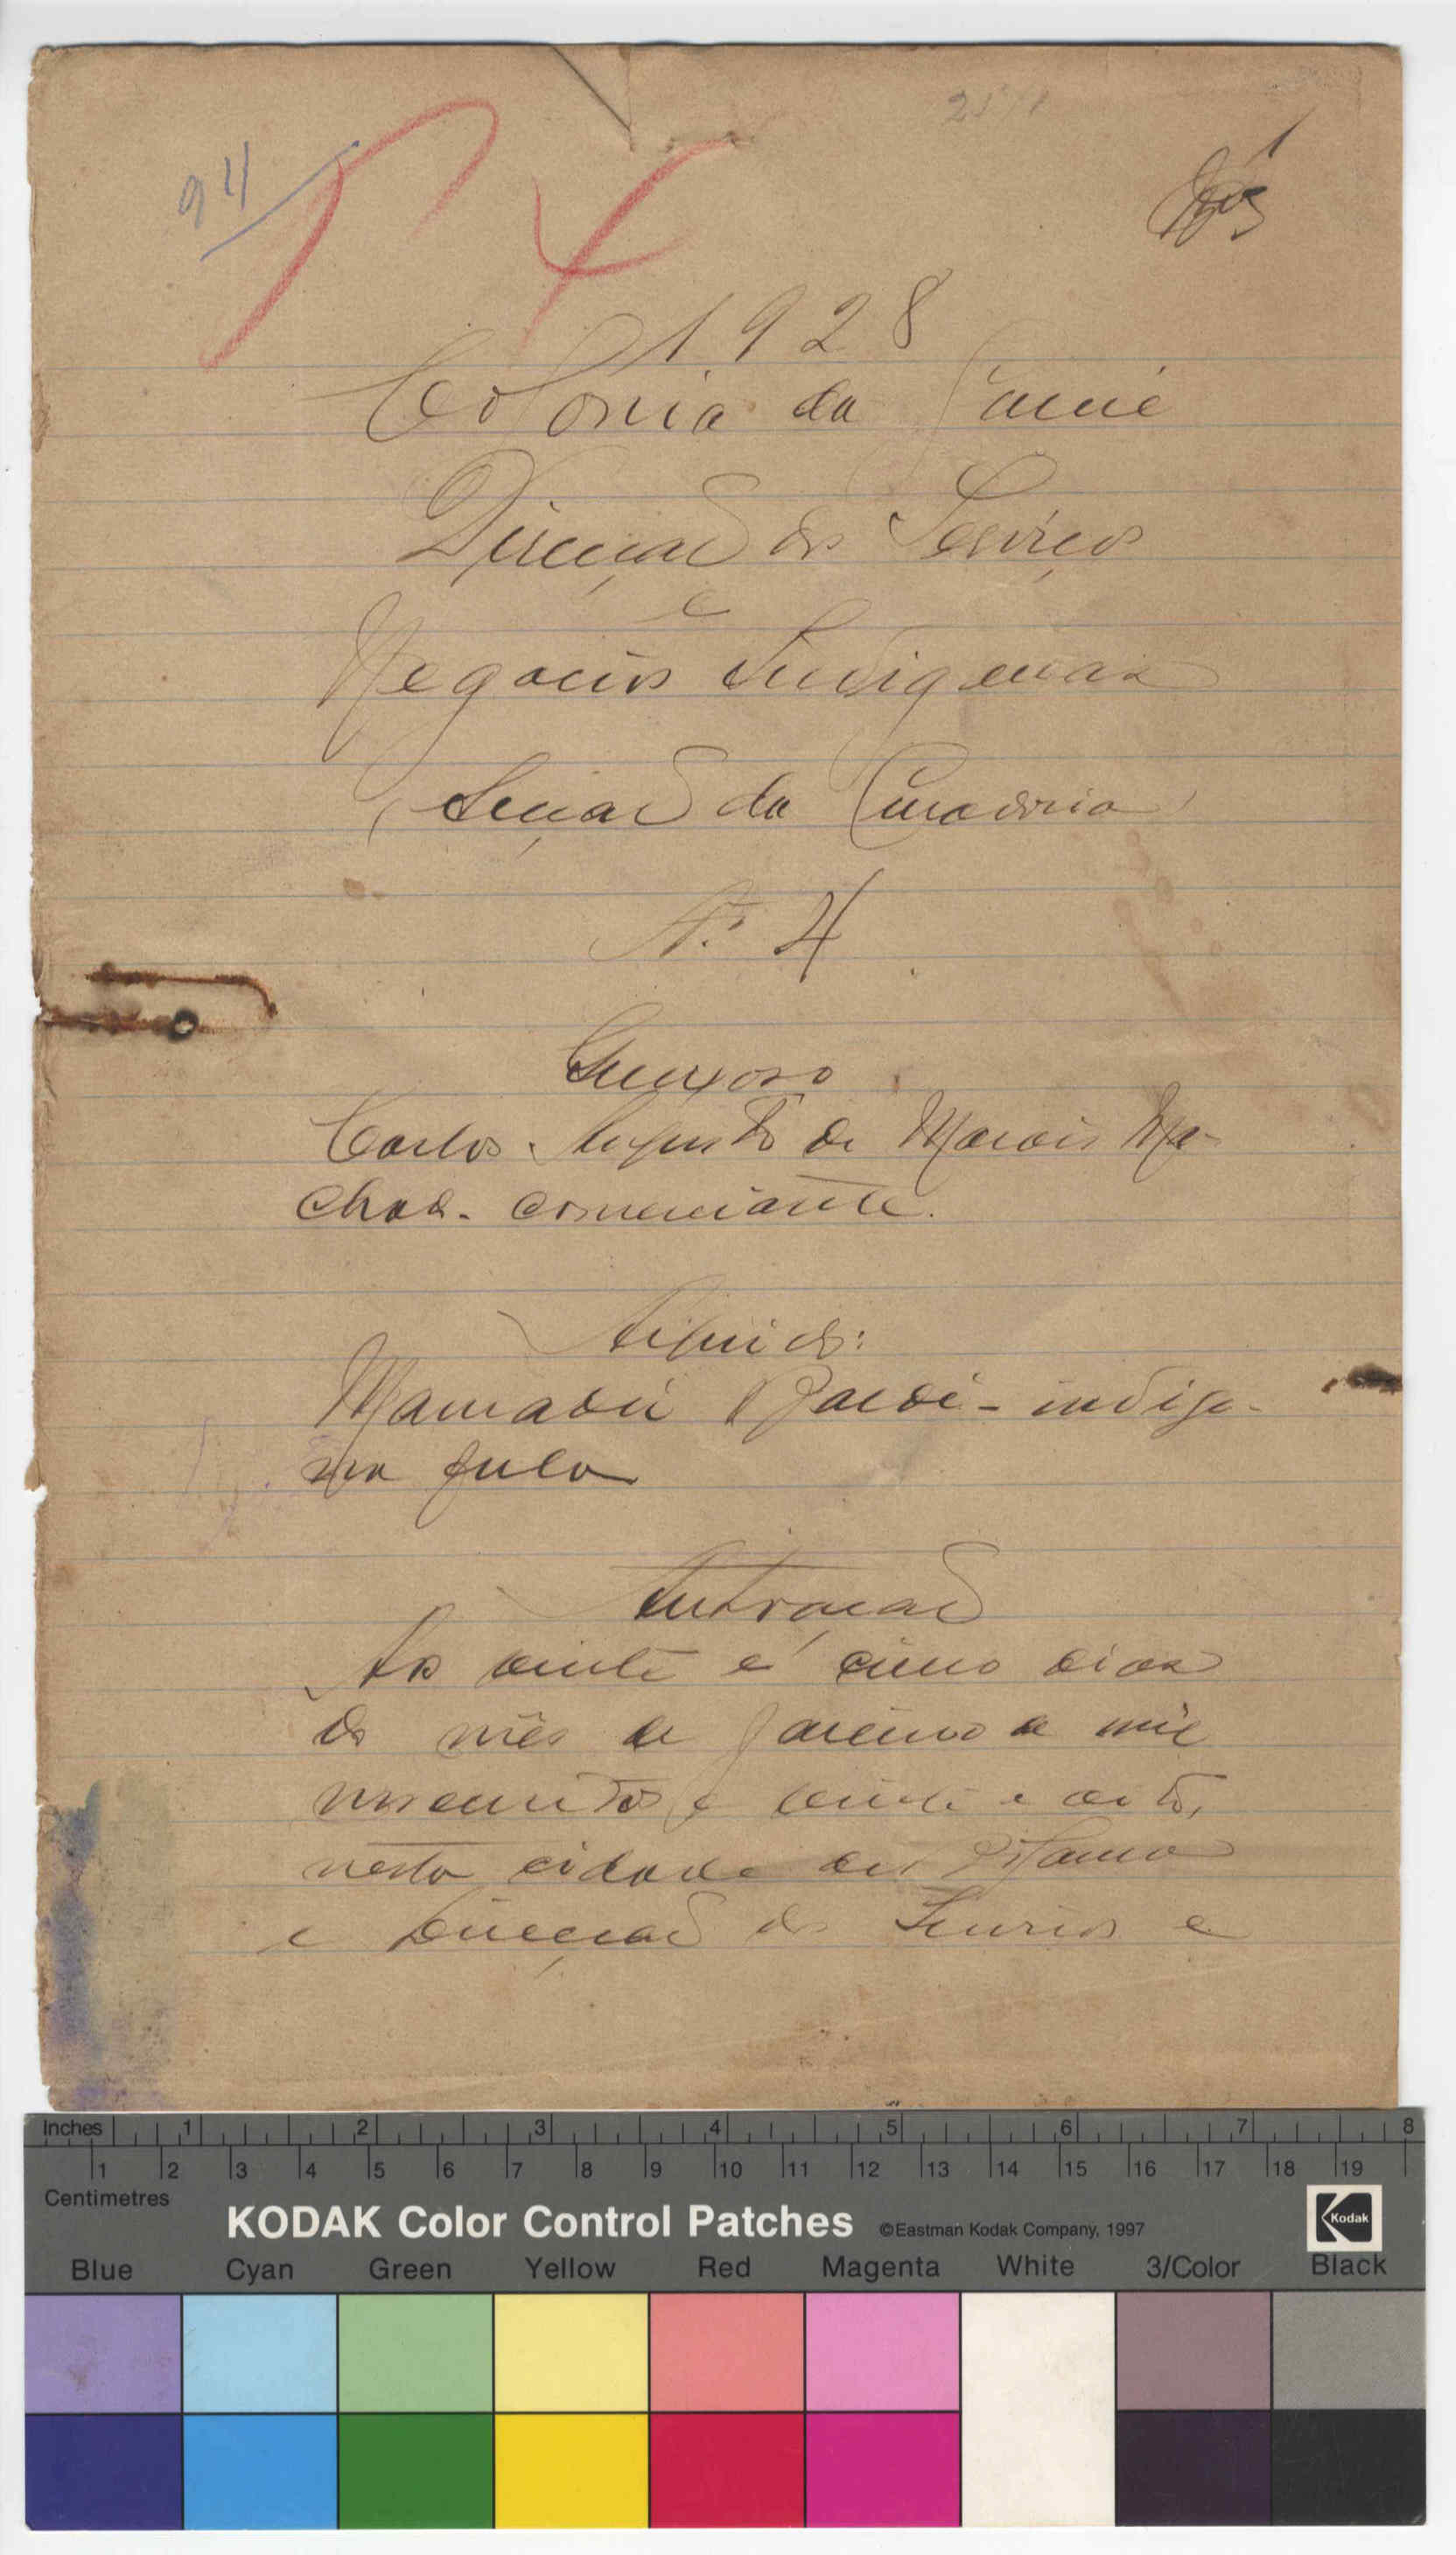 94
4
1
1928
Colonia da Guiné
Direcção dos Serviços
e
Negocios Indigenas
(Secção da Curadoria)
N.º 4
Queixoso
Carlos Augusto de Morais Ma-
chado - comerciante.
Arguido:
Mamadú Baldé - indige-
na fula
Autuação
Aos vinte e cinco dias
do mês de Janeiro de mil
novecentos e vinte e oito,
nesta cidade de Bolama
e Direcção dos Serviços e
Inches 1 2 3 4 5 6 7 8
1 2 3 4 5 6 7 8 9 10 11 12 13 14 15 16 17 18 19
Centimetres
KODAK Color Control Patches ©Eastman Kodak Company, 1997 Kodak
Blue Cyan Green Yellow Red Magenta White 3/Color Black